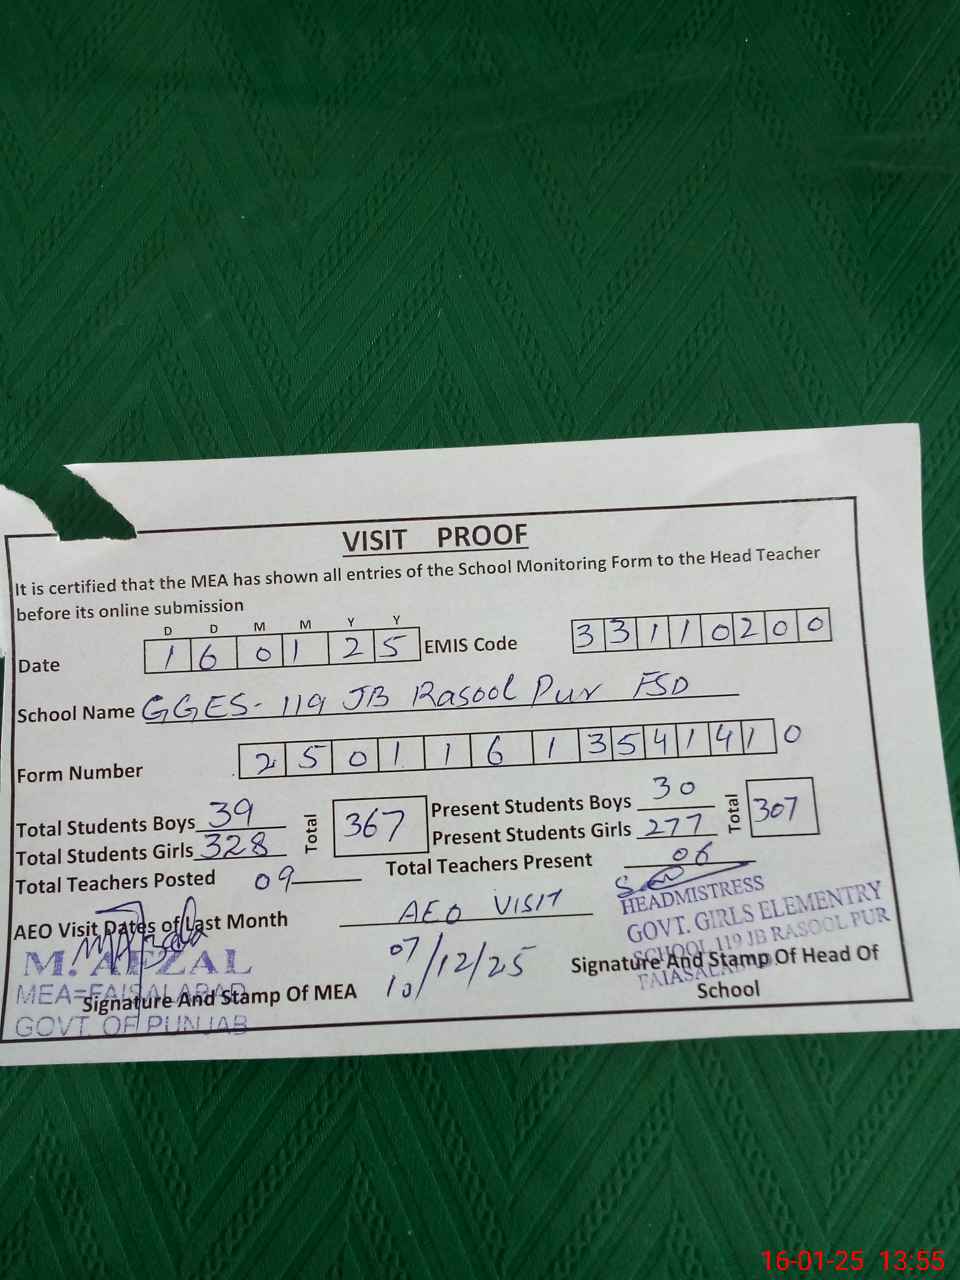 VISIT PROOF
It is certified that the MEA has shown all entries of the School Monitoring Form to the Head Teacher
before its online submission
D D M M Y Y
Date 1 6 0 1 2 5 EMIS Code 3 3 1 1 0 2 0 0
School Name GGES-119 JB Rasool Pur FSD
Form Number 2 5 0 1 1 6 1 3 5 4 1 4 1 0
Total Students Boys 39 Total 367 Present Students Boys 30 Total 307
Total Students Girls 328 Present Students Girls 277
Total Teachers Posted 09 Total Teachers Present 06
AEO Visit Dates of Last Month AEO VISIT
07/12/25
10
HEADMISTRESS
GOVT. GIRLS ELEMENTRY
SCHOOL 119 JB RASOOL PUR
FAIASALABAD
M. AFZAL
MEA=FAISALABAD
GOVT. OF PUNJAB
Signature And Stamp Of MEA
Signature And Stamp Of Head Of
School
16-01-25 13:55